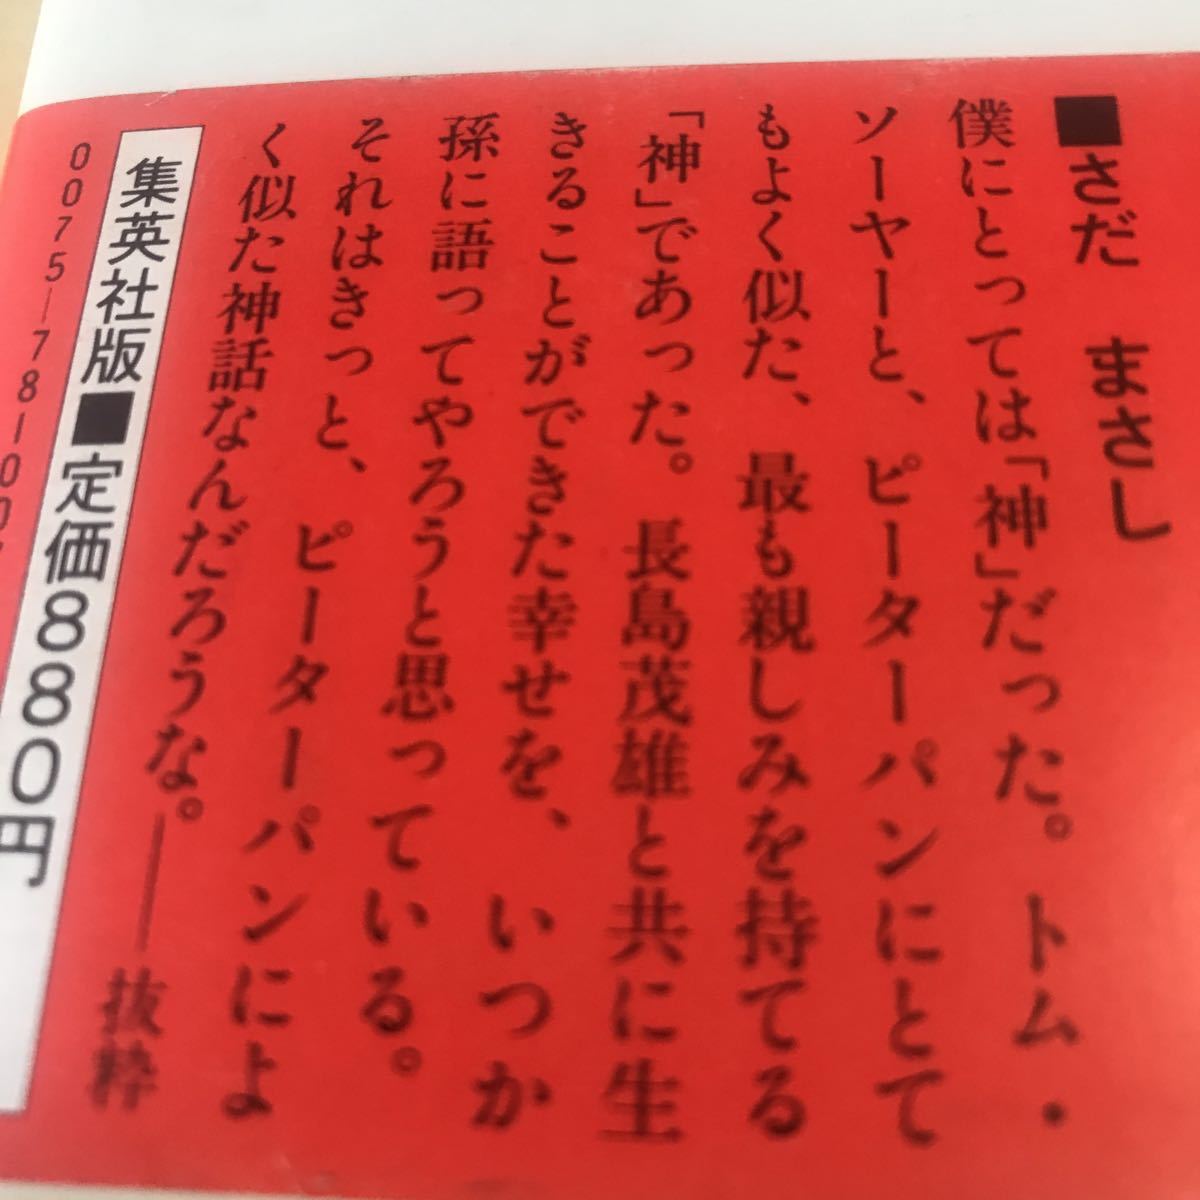 ■さだ　まさし
僕にとっては「神」だった。トム・
ソーヤーと、ピーターパンにとて
もよく似た、最も親しみを持てる
「神」であった。長島茂雄と共に生
きることができた幸せを、いつか
孫に語ってやろうと思っている。
それはきっと、ピーターパンによ
く似た神話なんだろうな。——抜粋
集英社版■定価880円
0075—78100